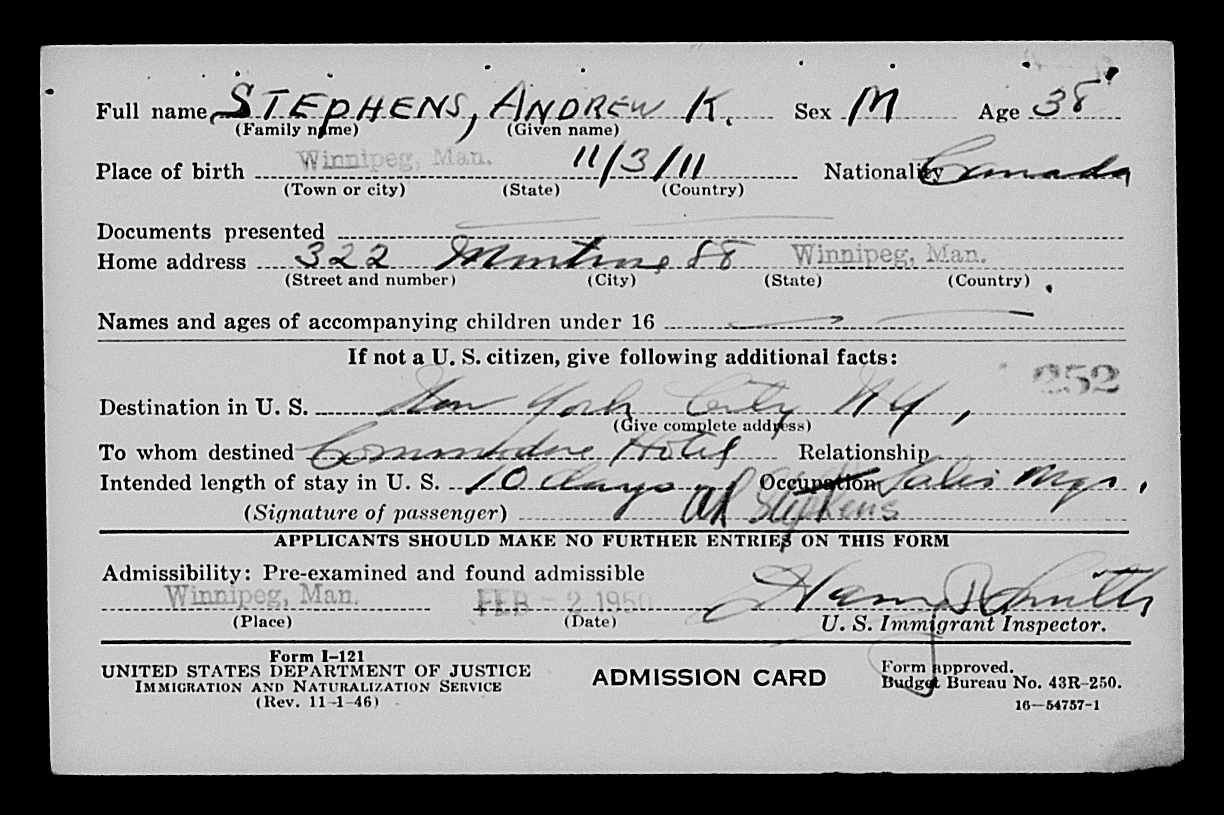 Full name STEPHENS, ANDREW K. Sex M Age 38
(Family name) (Given name)
Place of birth Winnipeg, Man. 11/3/11 Nationality Canada
(Town or city) (State) (Country)
Documents presented
Home address 322 Winnipeg, Man.
(Street and number) (City) (State) (Country)
Names and ages of accompanying children under 16
If not a U. S. citizen, give following additional facts:
252
Destination in U. S. New York City NY,
(Give complete address)
To whom destined Commodore Hotel Relationship
Intended length of stay in U. S. 10 days Occupation Sales Mgr.
(Signature of passenger) AK Stephens
APPLICANTS SHOULD MAKE NO FURTHER ENTRIES ON THIS FORM
Admissibility: Pre-examined and found admissible
Winnipeg, Man. FEB - 2 1950 Smith
(Place) (Date) U. S. Immigrant Inspector.
Form I-121
UNITED STATES DEPARTMENT OF JUSTICE
IMMIGRATION AND NATURALIZATION SERVICE
(Rev. 11-1-46)
ADMISSION CARD
Form approved.
Budget Bureau No. 43R-250.
16—54757-1